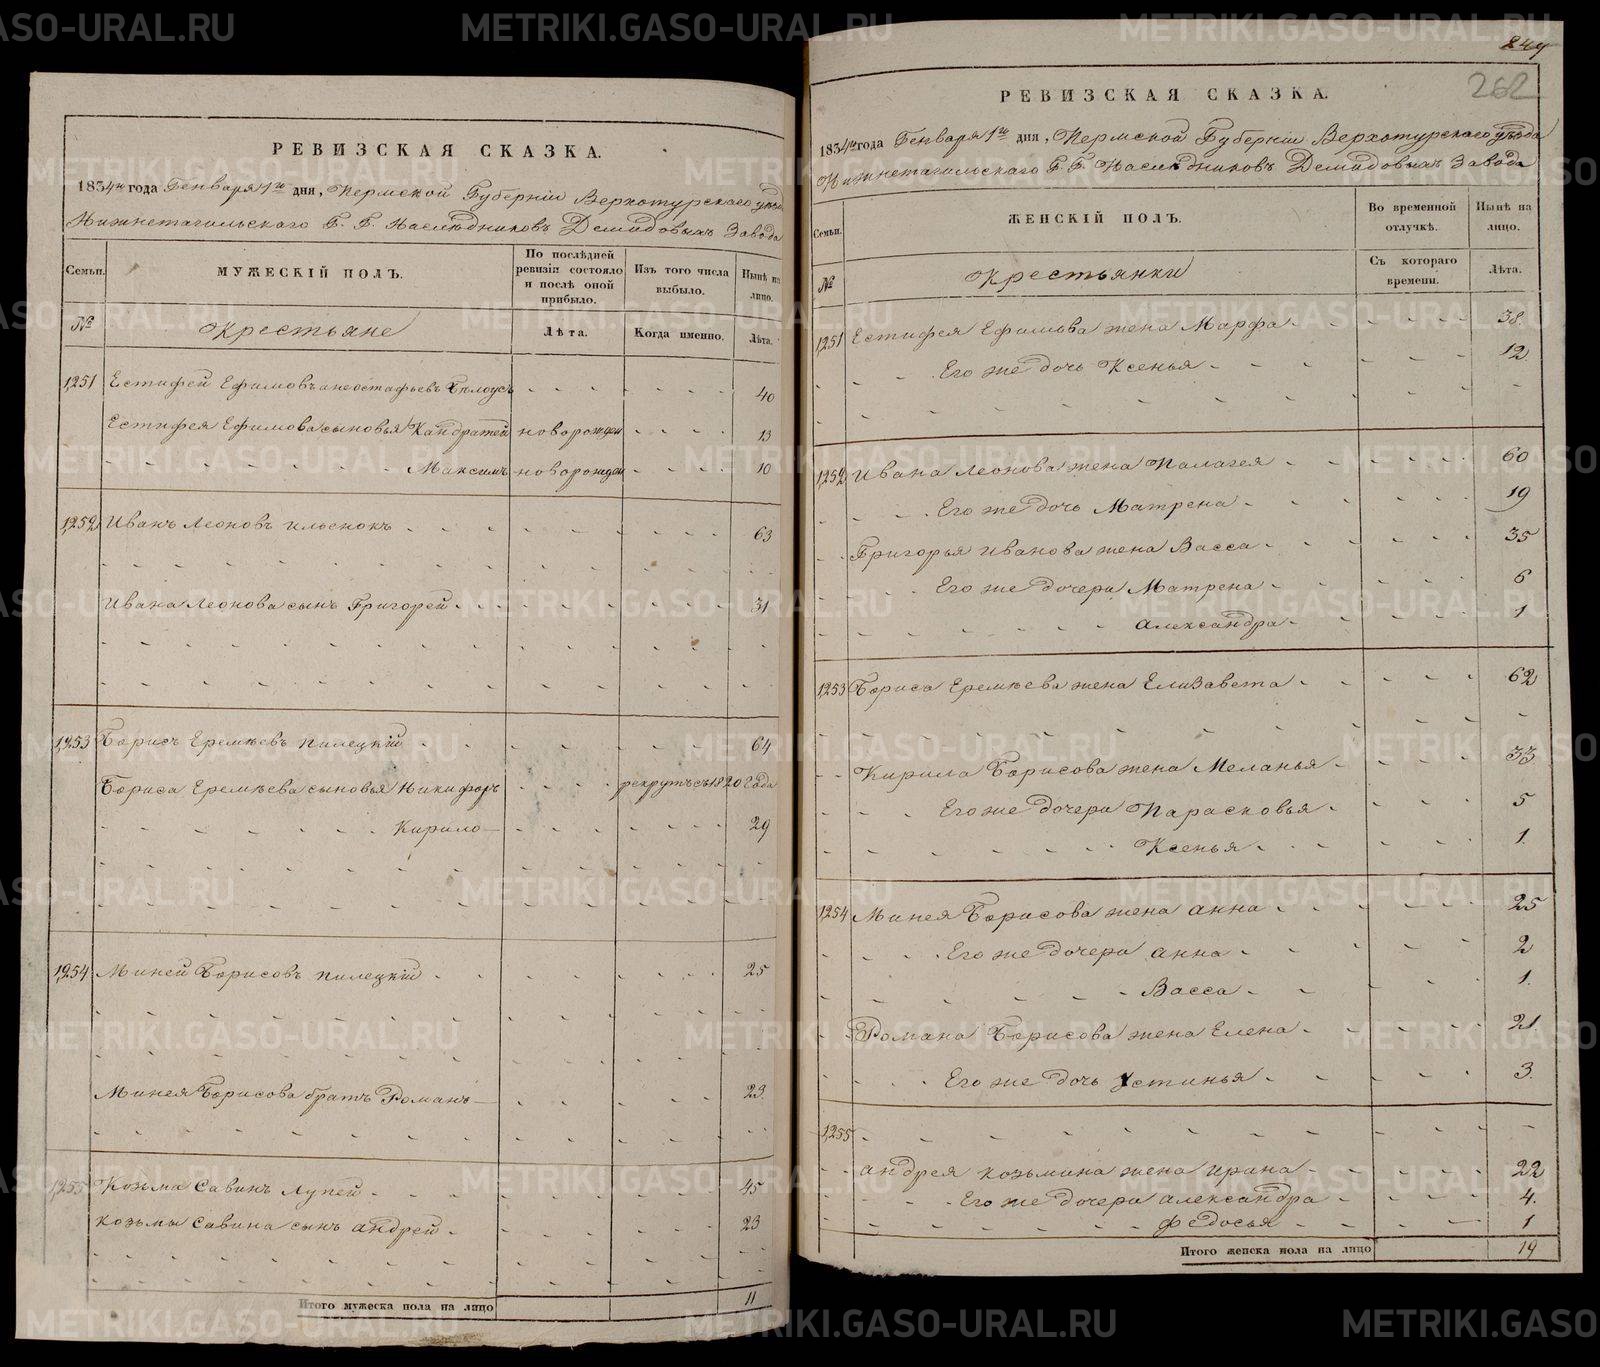 РЕВИЗСКАЯ СКАЗКА.
1834го года Генваря 1го дня, Пермской Губернiи Верхотурскаго уѣзда
Нижнетагильскаго Г. Г. Наслѣдниковъ Демидовыхъ Завода
Семьи. МУЖЕСКIЙ ПОЛЪ. По послѣдней ревизiи состояло и послѣ оной прибыло. Изъ того числа выбыло. Нынѣ на лицо.
№ Крестьяне Лѣта. Когда именно. Лѣта.
1251 Естифей Ефимовъ Белоусъ 40
Естифея Ефимова сыновья Кандратей новорожден 13
Максимъ новорожден 10
1252 Иванъ Леоновъ Ильенокъ 63
Ивана Леонова сынъ Григорей 31
1253 Борисъ Еремѣевъ Пилецкiй 64
Бориса Еремѣева сыновья Никифоръ рекрутъ съ 1820 года
Кирило 29
1254 Миней Борисовъ Пилецкiй 25
Минея Борисова братъ Романъ 23.
1255 Козьма Савинъ Лупей 45
Козьмы Савина сынъ Андрей 23
Итого мужеска пола на лицо 11
849
262
РЕВИЗСКАЯ СКАЗКА.
1834го года Генваря 1го дня, Пермской Губернiи Верхотурскаго уѣзда
Нижнетагильскаго Г. Г. Наслѣдниковъ Демидовыхъ Завода
Семьи. ЖЕНСКIЙ ПОЛЪ. Во временной отлучкѣ. Нынѣ на лицо.
№ Крестьянки Съ котораго времени. Лѣта.
1251 Естифея Ефимова жена Марфа 38.
Его же дочь Ксенья 12
1252 Ивана Леонова жена Палагея 60
Его же дочь Матрена 19
Григорья Иванова жена Васса 35
Его же дочери Матрена 6
Александра 1
1253 Бориса Еремѣева жена Елизавета 62
Кирила Борисова жена Меланья 33
Его же дочери Парасковья 5
Ксенья 1.
1254 Минея Борисова жена Анна 25
Его же дочери Анна 2
Васса 1.
Романа Борисова жена Елена 21
Его же дочь Устинья 3.
1255
Андрея Козьмина жена Ирина 22
Его же дочери Александра 4.
Федосья 1
Итого женска пола на лицо 19
METRIKI.GASO-URAL.RU